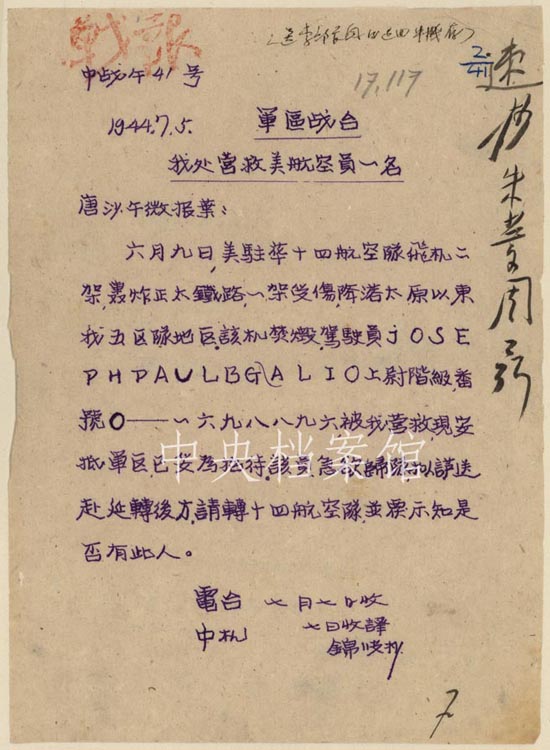 战报
(送李部长阅后退回机要科)
17,117
2/41
速抄朱彭周
中战午41号
1944.7.5. 軍區战台
我处营救美航空員一名
唐沙午微报葉：
六月九日,美駐華十四航空隊飛机二
架,轟炸正太鐵路,一架受傷,降落太原以東
我五区隊地区,該机焚燬,駕駛員JOSE
PHPAULBG(ALIO上尉階級,番
號O——一六九八八九六被我营救現安
抵軍区,已妥为招待,該員急欲歸隊拟護送
赴延轉後方,請轉十四航空隊,並票示知是
否有此人。
電台 七月七日收
中机 七日收譯
抄
7
中央档案馆